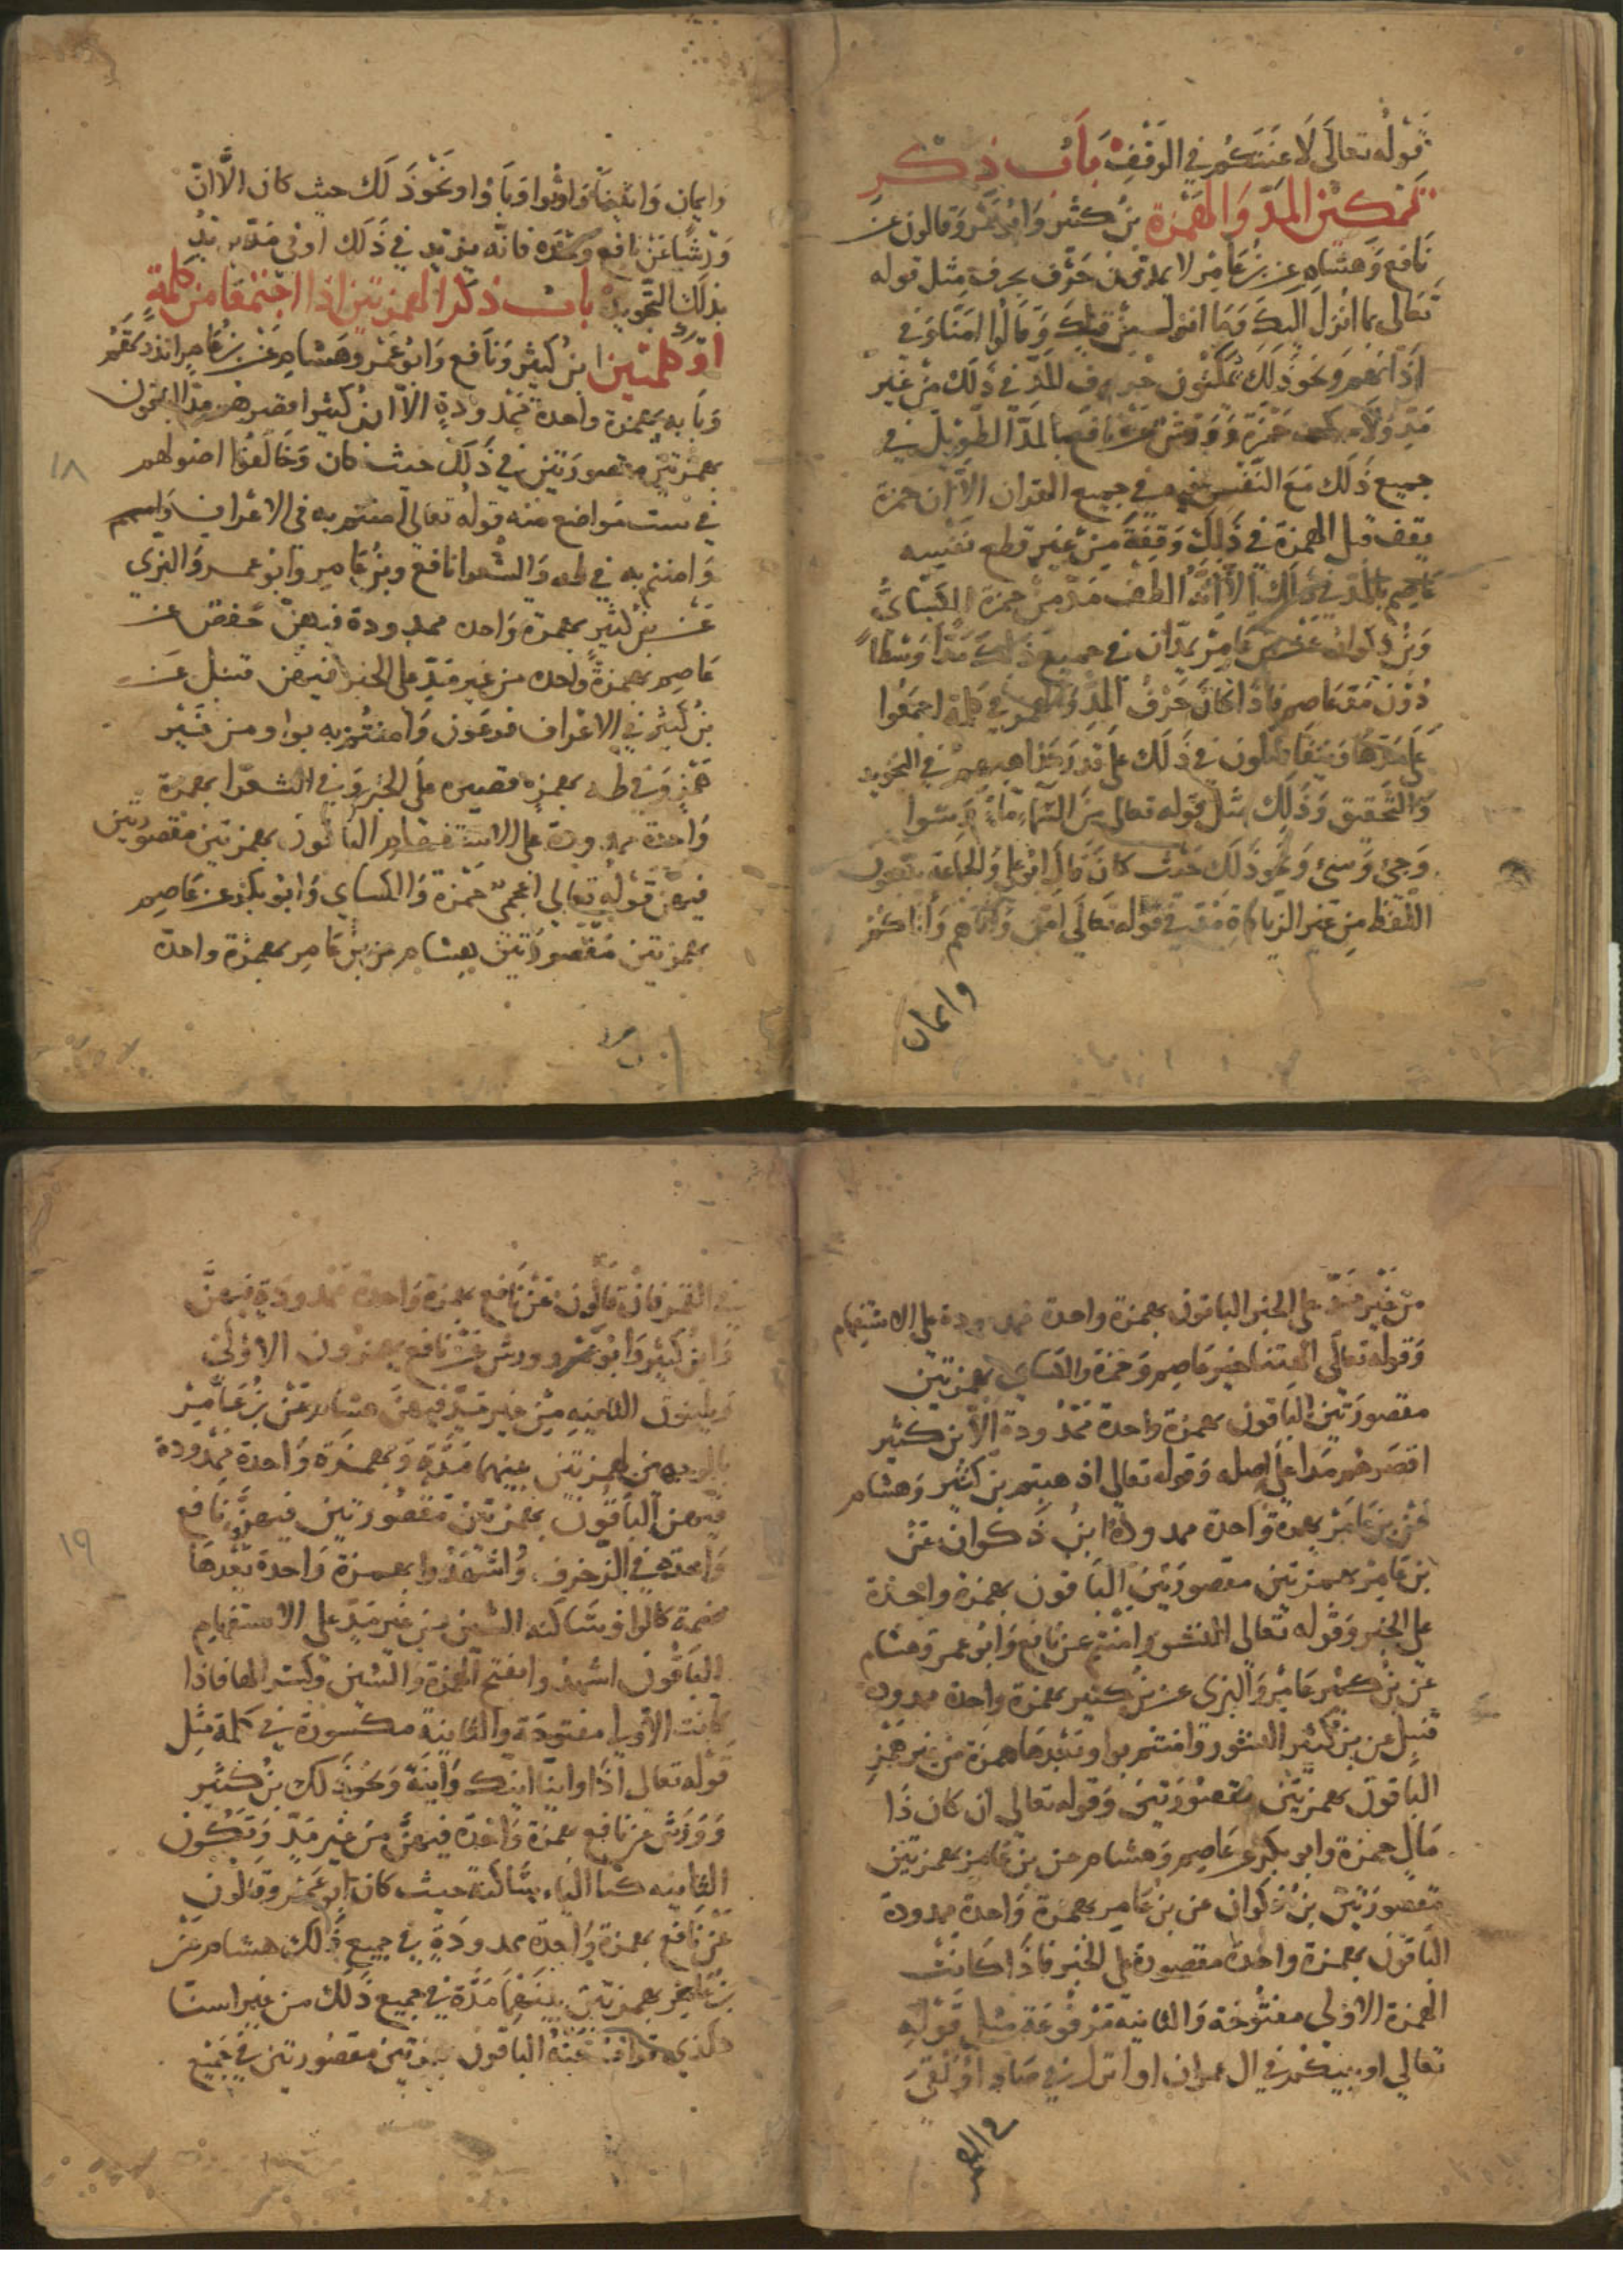 قوله تعالى لاعنتكم في الوقف باب ذكر
تمكين المد والهمزة بن كثير وابو عمر وقالون عن
نافع وهشام عن بن عامر لا يمدون حرف بحرف مثل قوله
تعالى بما انزل اليك وما انزل من قبلك وقالوا امنا وفي
اذانهم ونحو ذلك يمكنون حروف المد في ذلك من غير
مد حمزة وورش عن نافع بالمد الطويل في
جميع ذلك مع النفس في جميع القران الا ان حمزة
يقف قبل الهمزة في ذلك وقفة من غير قطع نفسه
عاصم بالمد في ذلك الا انه الطف مد من حمزة الكسائي
وبن ذكوان عن بن عامر يمدان في جميع ذلك مدا وسطا
دون مد عاصم فاذا كان حرف المد والهمز في كلمة اجمعوا
على مدها ويتفاضلون في ذلك على قدر مذاهبهم في التجويد
والتحقيق وذلك مثل قوله تعالى من السماء ماء
وجئ وسئ ونحو ذلك حيث كان قال ابو علي والجماعة
اللفظ من غير الزيادة في قوله تعالى امن واتاهم وانا كنتم
وايمان
وايمان وايضا واوتوا وباوا ونحو ذلك حيث كان الا ان
ورشا عن نافع وحده فانه يزيد في ذلك اوفى مد يريد
بذلك التجويد باب ذكر الهمزتين اذا اجتمعا من كلمة
او كلمتين ابن كثير ونافع وابو عمر وهشام عن بن عامر انذرتهم
وبابه بهمزة واحدة ممدودة الا ان بن كثير اقصرهم مدا الباقون
بهمزتين مقصورتين في ذلك حيث كان وخالفوا اصولهم
١٨
في ست مواضع منه قوله تعالى امنتم به في الاعراف
وامنتم به في طه والشعرا نافع وبن عامر وابو عمر والبزي
عن بن كثير بهمزة واحده ممدودة فيهن حفص عن
عاصم بهمزة واحده من غير مد على الخبر فيهن قنبل عن
بن كثير في الاعراف فرعون وامنتم به بواو ومن غير
همز وفي طه بهمزه قصيره على الخبر وفي الشعرا بهمزة
واحدة ممدودة على الاستفهام الباقون بهمزتين مقصورتين
فيهن قوله تعالى اعجمي حمزة والكساي وابو بكر عن عاصم
بهمزتين مقصورتين هشام عن بن عامر بهمزة واحدة
من غير مد على الخبر الباقون بهمزة واحدة ممدودة على الاستفهام
وقوله تعالى االهتنا خير عاصم وحمزة والكساي بهمزتين
مقصورتين الباقون بهمزة واحدة ممدودة الا بن كثير
اقصرهم مدا على اصله وقوله تعالى اذهبتم بن كثير وهشام
عن بن عامر بهمزة واحدة ممدودة ابن ذكوان عن
بن عامر بهمزتين مقصورتين الباقون بهمزة واحدة
على الخبر وقوله تعالى النشور وامنتم عن نافع وابو عمر وهشام
عن بن عامر والبزي عن بن كثير بهمزة واحدة ممدودة
قنبل عن بن كثير النشور وامنتم بواو وبعدها همزة من غير همز
الباقون بهمزتين مقصورتين وقوله تعالى ان كان ذا
مال حمزة وابو بكر عن عاصم وهشام عن بن عامر بهمزتين
مقصورتين بن ذكوان عن بن عامر بهمزة واحدة ممدودة
الباقون بهمزة واحدة مقصورة على الخبر فاذا كانت
الهمزة الاولى مفتوحة والثانية مرفوعة مثل قوله
تعالى اونبيكم في ال عمران اوانزل في صاد اوالقي
في القمر
في القمر فان قالون عن نافع بهمزة واحدة ممدودة فيهن
وابن كثير وابو عمر وورش عن نافع يهمزون الاولى
ويلينون الثانيه من غير مد فيهن هشام عن بن عامر
بالوجهين بهمزتين بينهما مدة وبهمزة واحدة ممدودة
فيهن الباقون بهمزتين مقصورتين فيهن نافع
١٩
وحده في الزخرف واشهدوا بهمزة واحدة بعدها
ضمة كالواو ساكنه الشين من غير مد على الاستفهام
الباقون اشهدوا بفتح الهمزة والشين وكسر الها فاذا
كانت الاولى مفتوحة والثانية مكسورة في كلمة مثل
قوله تعالى اذا وانا اينك واينه ونحو ذلك بن كثير
وورش عن نافع بهمزة واحدة فيهن من غير مد وتكون
الثانيه كالياء ساكنة حيث كان ابو عمر وقالون
عن نافع بهمزة واحدة ممدودة في جميع ذلك هشام عن
بن عامر بهمزتين بينهما مدة في جميع ذلك من غير استثنا
الباقون بهمزتين مقصورتين في جميع